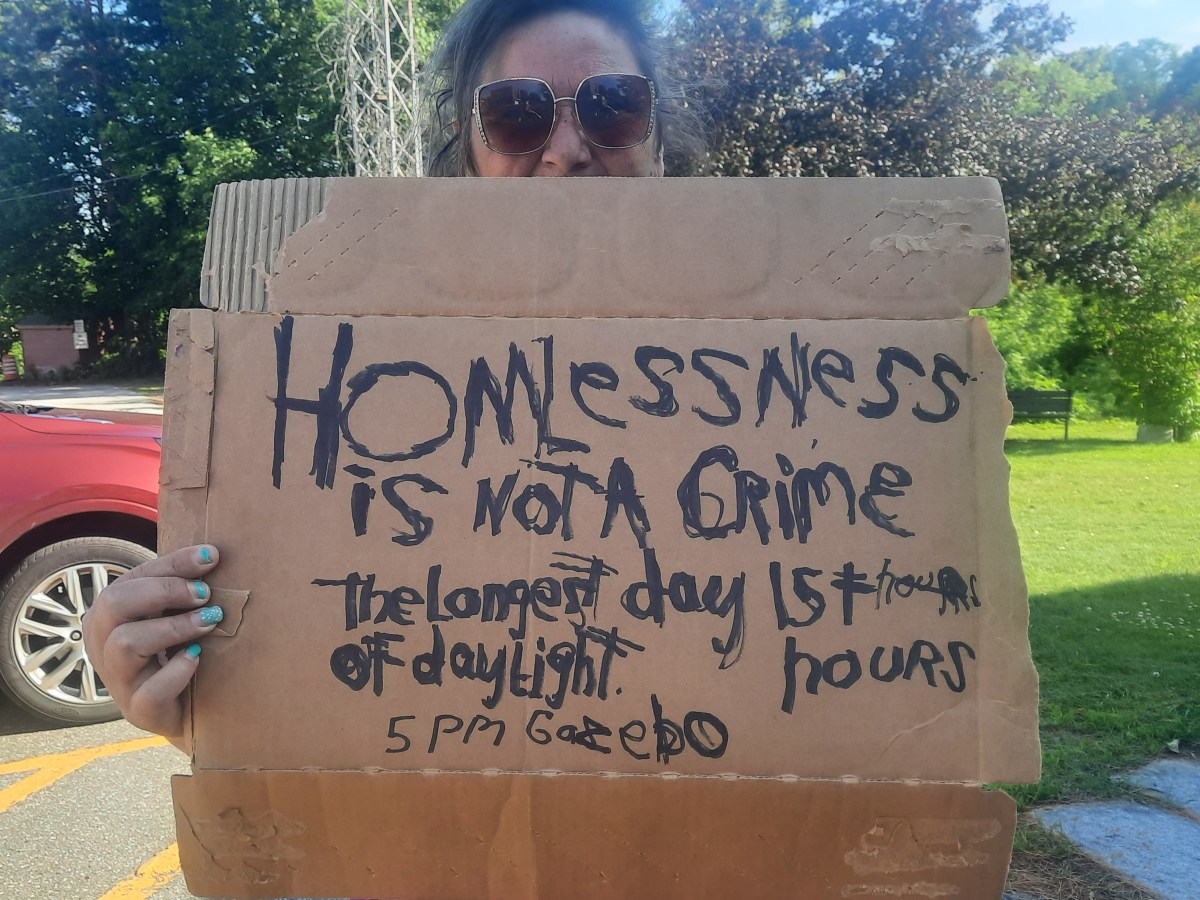 HOMLessNess
is NOT A CRime
the Longest day 15+ hours
OF dayLight. hOURS
5 PM Gazebo